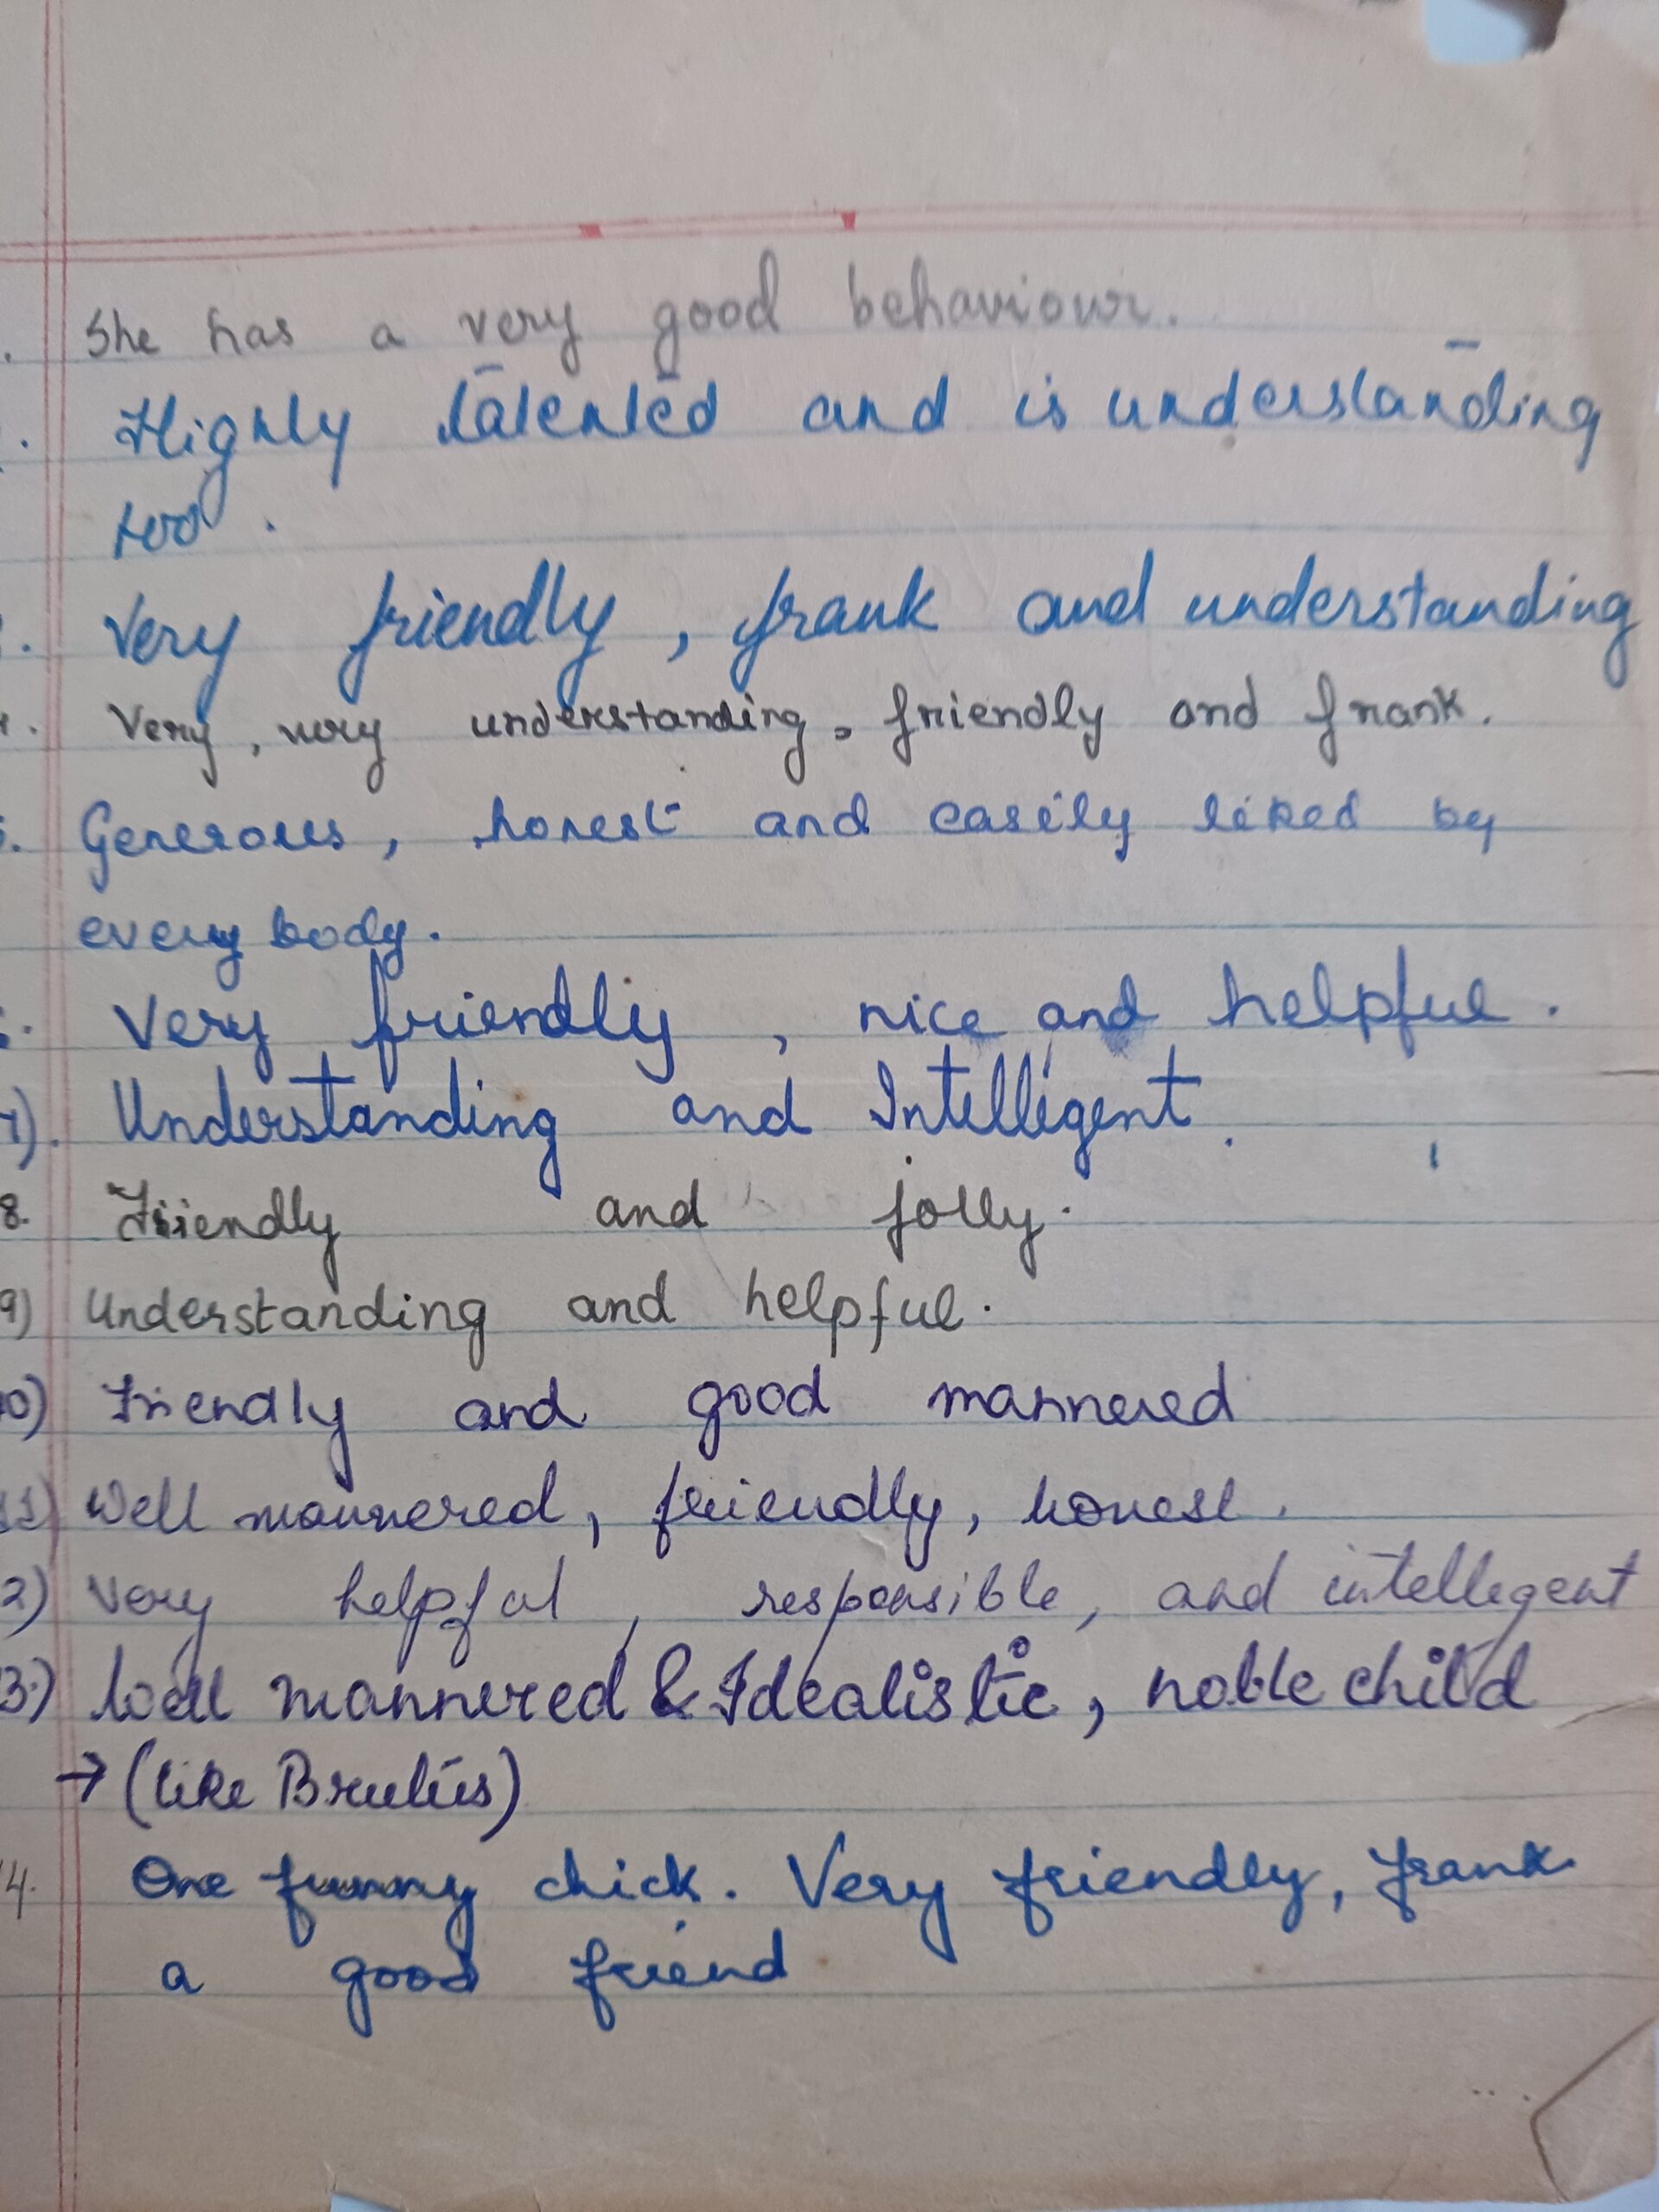 . She has a very good behaviour.
. Highly talented and is understanding
too.
. Very friendly, frank and understanding
4. Very, very understanding, friendly and frank.
5. Generous, honest and easily liked by
every body.
6. Very friendly, nice and helpful.
7). Understanding and Intelligent.
8. Friendly and jolly.
9) Understanding and helpful.
10) Friendly and good mannered
11) Well mannered, friendly, honest.
2) Very helpful, responsible, and intellegent
3.) Well mannered & Idealistic, noble child
→ (like Brutus)
14. One funny chick. Very friendly, frank
a good friend